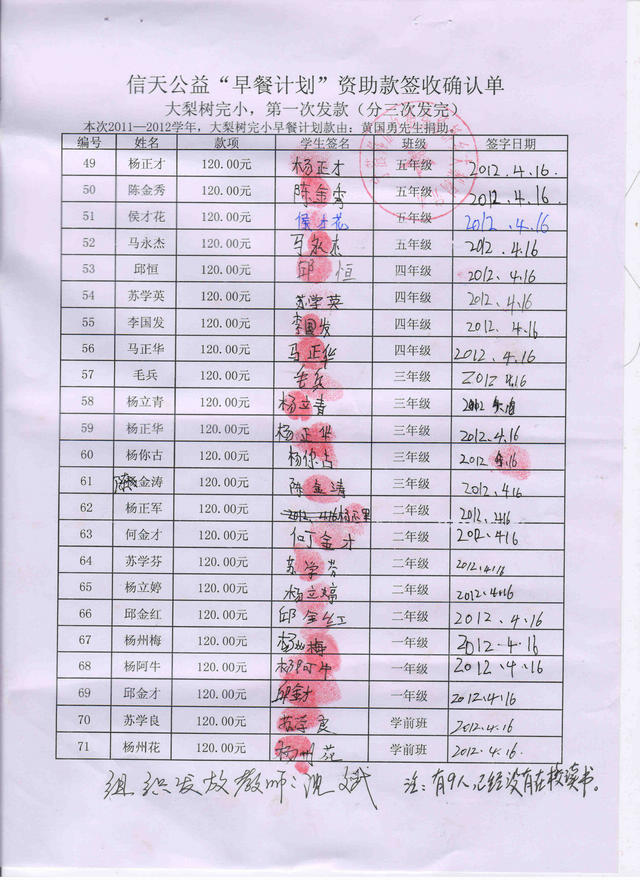 信天公益“早餐计划”资助款签收确认单
大梨树完小，第一次发款（分三次发完）
本次2011—2012学年，大梨树完小早餐计划款由：黄国勇先生捐助。
编号 姓名 款项 学生签名 班级 签字日期
49 杨正才 120.00元 杨正才 五年级 2012.4.16.
50 陈金秀 120.00元 陈金秀 五年级 2012.4.16
51 侯才花 120.00元 侯才花 五年级 2012.4.16
52 马永杰 120.00元 马永杰 五年级 2012.4.16
53 邱恒 120.00元 邱恒 四年级 2012.4.16
54 苏学英 120.00元 苏学英 四年级 2012.4.16
55 李国发 120.00元 李国发 四年级 2012.4.16
56 马正华 120.00元 马正华 四年级 2012.4.16
57 毛兵 120.00元 毛兵 三年级 2012 4.16
58 杨立青 120.00元 杨立青 三年级 2012
59 杨正华 120.00元 杨正华 三年级 2012.4.16
60 杨你古 120.00元 杨你古 三年级 2012 4.16
61 金涛 120.00元 陈金涛 三年级 2012.4.16
62 杨正军 120.00元 2012.4.16 二年级 2012.4.16
63 何金才 120.00元 何金才 二年级 2012.4.16
64 苏学芬 120.00元 苏学芬 二年级 2012.4.16
65 杨立婷 120.00元 杨立婷 二年级 2012.4.16
66 邱金红 120.00元 邱金红 二年级 2012.4.16
67 杨州梅 120.00元 杨州梅 一年级 2012.4.16
68 杨阿牛 120.00元 杨阿牛 一年级 2012.4.16
69 邱金才 120.00元 邱金才 一年级 2012.4.16
70 苏学良 120.00元 苏学良 学前班 2012.4.16
71 杨州花 120.00元 杨州花 学前班 2012.4.16.
组织发放教师：沈斌 注：有9人已经没有在校读书。